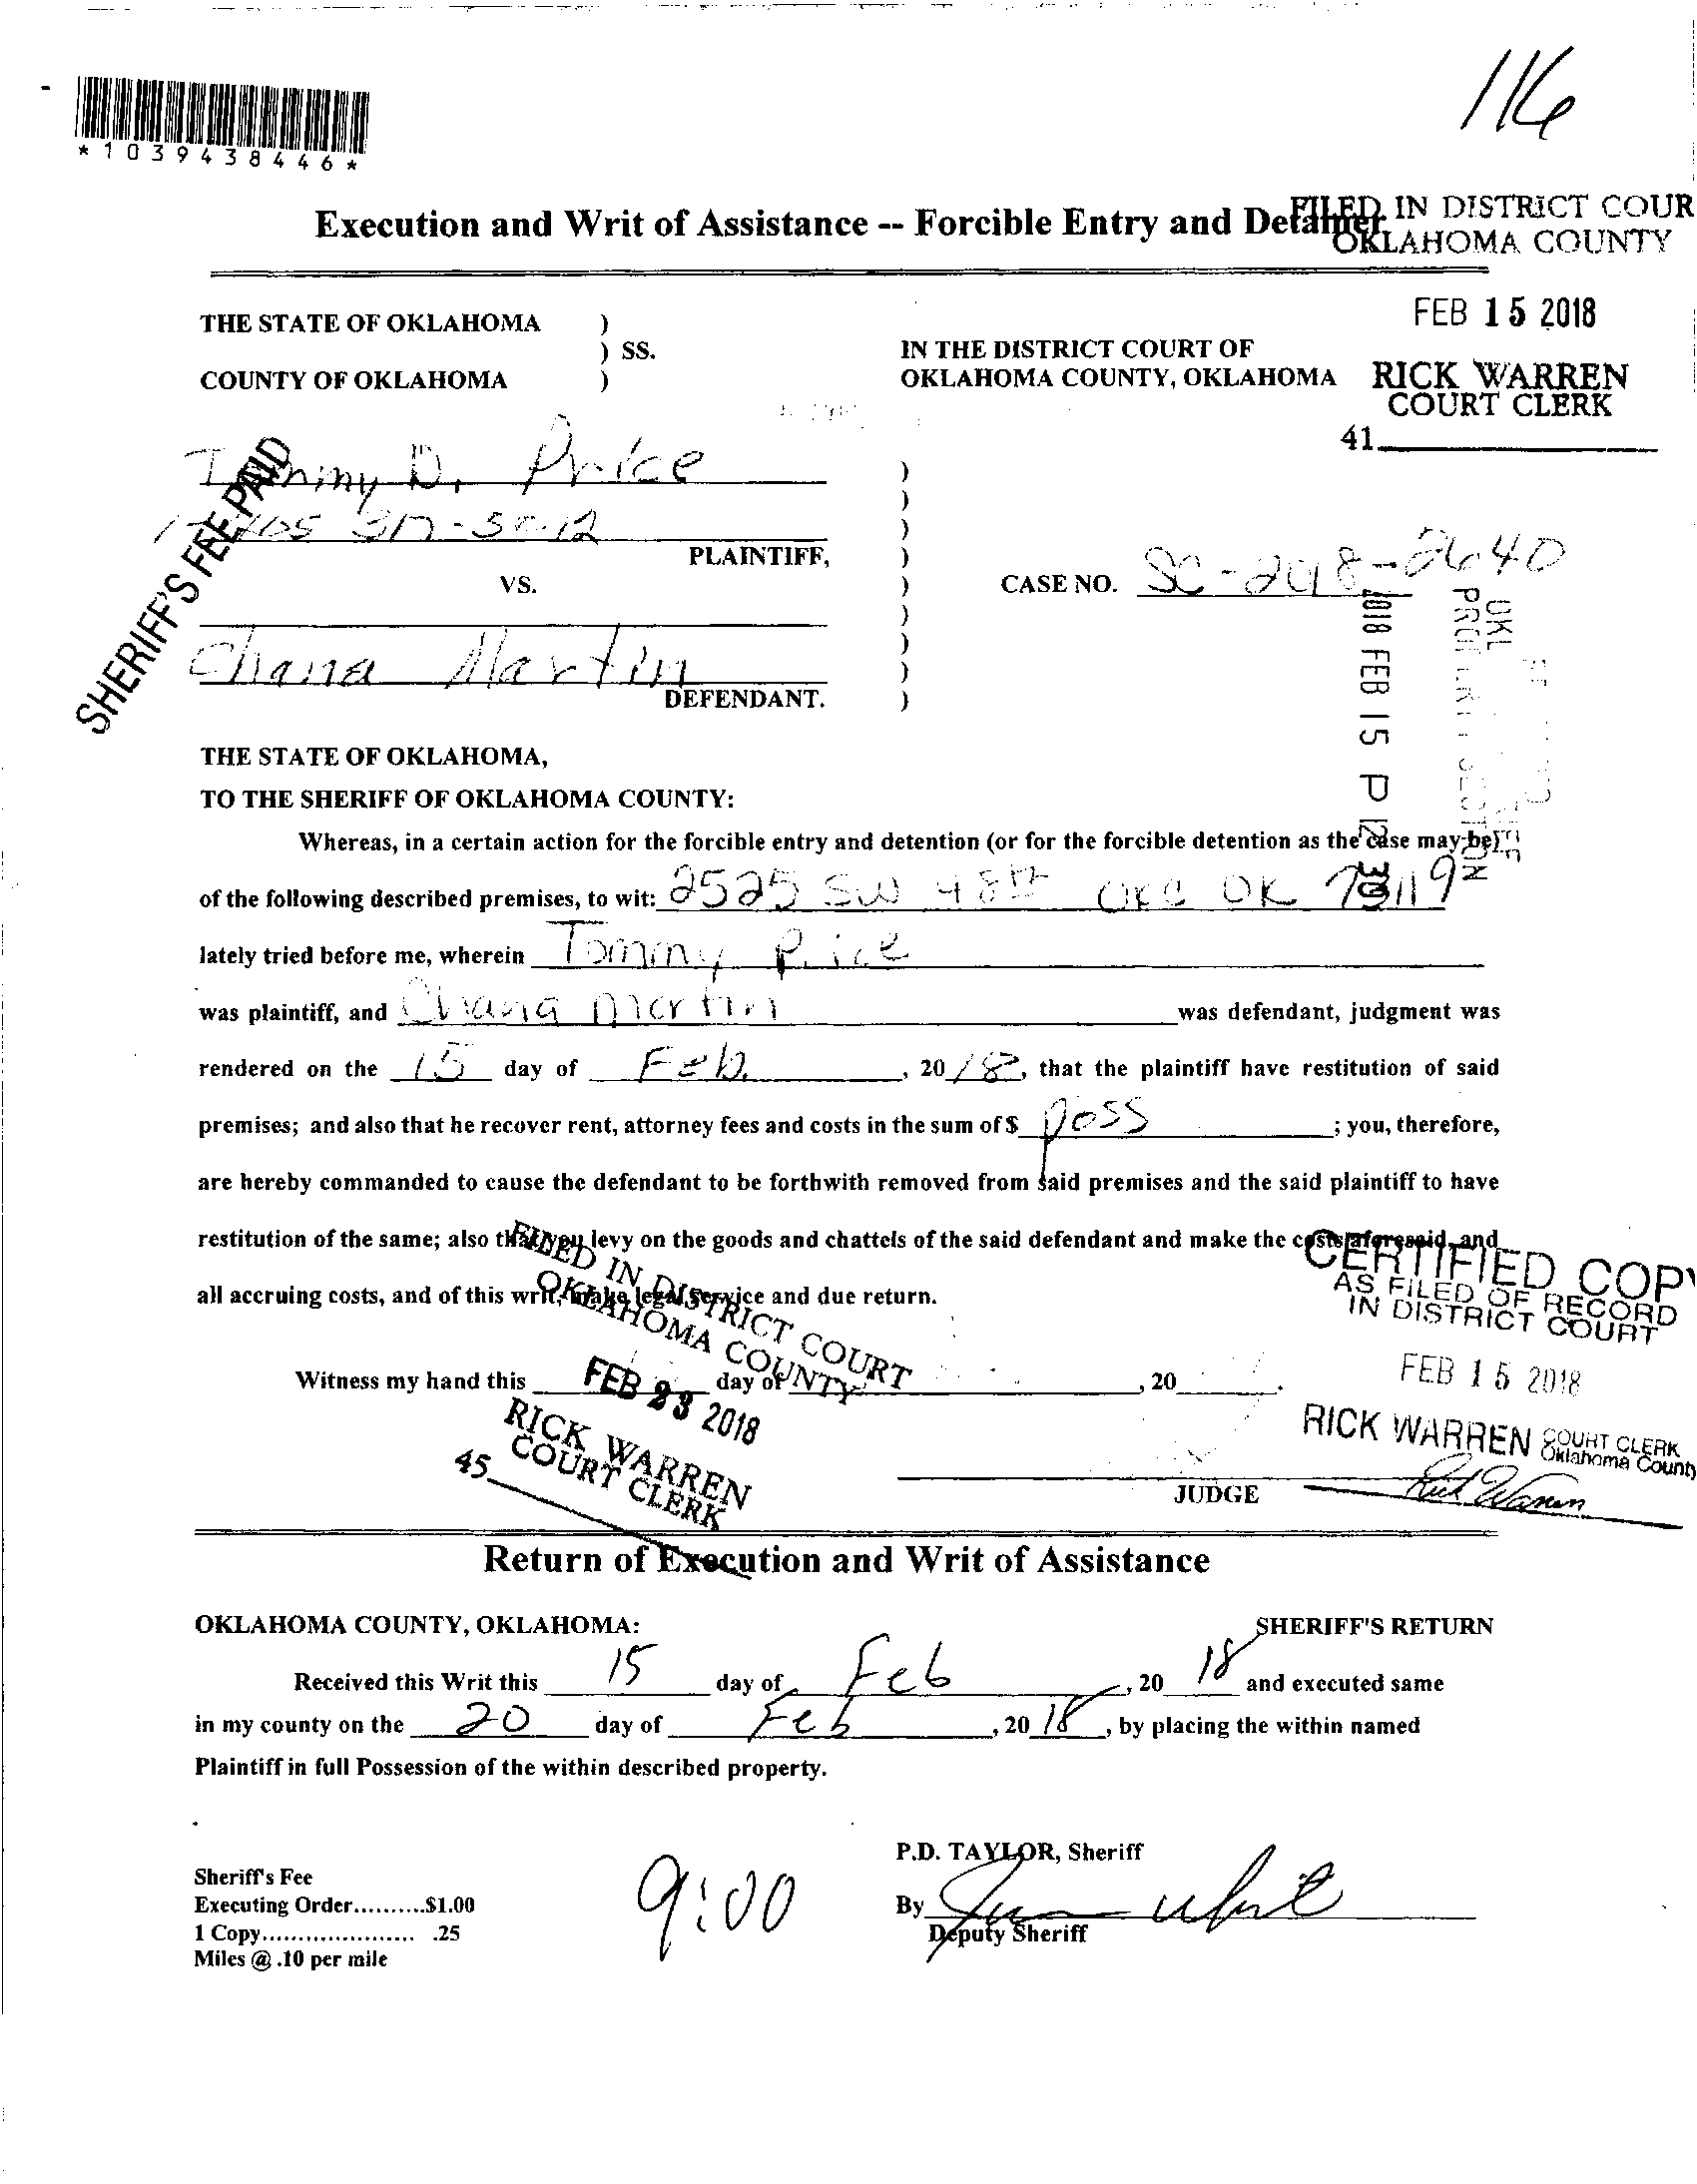 116
*1039438446*
Execution and Writ of Assistance -- Forcible Entry and Detainer
FILED IN DISTRICT COUR
OKLAHOMA COUNTY
FEB 15 2018
RICK WARREN
COURT CLERK
41
THE STATE OF OKLAHOMA )
) SS.
COUNTY OF OKLAHOMA )
IN THE DISTRICT COURT OF
OKLAHOMA COUNTY, OKLAHOMA
SHERIFF'S FEE PAID
Tommy D. Price
PLAINTIFF,
VS.
CASE NO. SC-2018-2640
2018 FEB 15 P
Chana Martin
DEFENDANT.
THE STATE OF OKLAHOMA,
TO THE SHERIFF OF OKLAHOMA COUNTY:
Whereas, in a certain action for the forcible entry and detention (or for the forcible detention as the case may be)
of the following described premises, to wit: 2525 SW 48th OKC OK 73119
lately tried before me, wherein Tommy Price
was plaintiff, and Chana Martin was defendant, judgment was
rendered on the 15 day of Feb. , 20 18, that the plaintiff have restitution of said
premises; and also that he recover rent, attorney fees and costs in the sum of $ poss ; you, therefore,
are hereby commanded to cause the defendant to be forthwith removed from said premises and the said plaintiff to have
restitution of the same; also that you levy on the goods and chattels of the said defendant and make the costs aforesaid, and
all accruing costs, and of this writ, make legal service and due return.
FILED IN DISTRICT COURT
OKLAHOMA COUNTY
FEB 23 2018
RICK WARREN
COURT CLERK
45
CERTIFIED COPY
AS FILED OF RECORD
IN DISTRICT COURT
FEB 15 2018
RICK WARREN COURT CLERK
Oklahoma County
Rick Warren
Witness my hand this day of , 20 .
JUDGE
Return of Execution and Writ of Assistance
OKLAHOMA COUNTY, OKLAHOMA: SHERIFF'S RETURN
Received this Writ this 15 day of Feb , 20 18 and executed same
in my county on the 20 day of Feb , 20 18 , by placing the within named
Plaintiff in full Possession of the within described property.
P.D. TAYLOR, Sheriff
Sheriff's Fee
Executing Order..........$1.00
1 Copy..................... .25
Miles @ .10 per mile
9:00
By
Deputy Sheriff